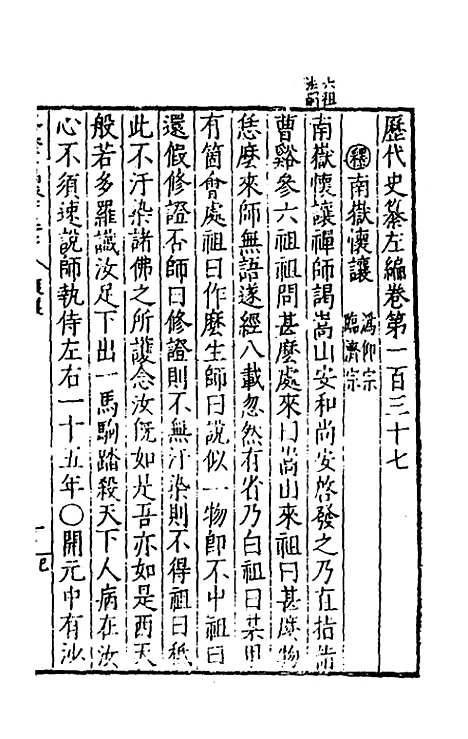 六祖
法嗣
歷代史纂左編卷第一百三十七
釋南嶽懷讓 溈仰宗
臨濟宗
南嶽懷讓禪師謁嵩山安和尚安啓發之乃直指詣
曹谿參六祖祖問甚麼處來曰嵩山來祖曰甚麼物
恁麼來師無語遂經八載忽然有省乃白祖曰某甲
有箇會處祖曰作麼生師曰說似一物卽不中祖曰
還假修證否師曰修證則不無汙染則不得祖曰秪
此不汙染諸佛之所護念汝旣如是吾亦如是西天
般若多羅讖汝足下出一馬駒踏殺天下人病在汝
心不須速說師執侍左右一十五年〇開元中有沙